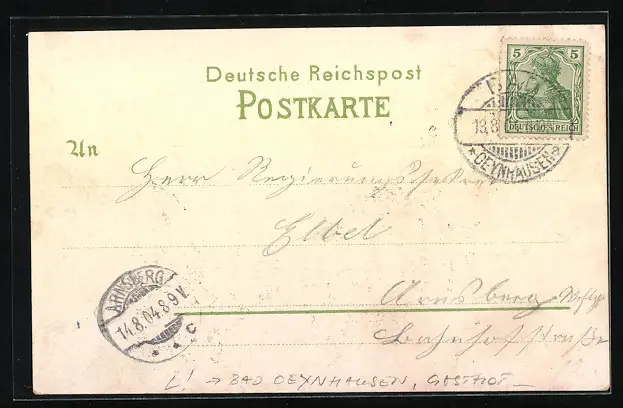 Deutsche Reichspost
POSTKARTE
5 5
DEUTSCHES REICH
BAD
13.8
* OEYNHAUSEN
An
Herrn Regierungssekretär
Elbel
Arnsberg Westf.
Bahnhofstraße
ARNSBERG
14.8.04.8-9V.
* * C
L! → BAD OEYNHAUSEN, GASTHOF